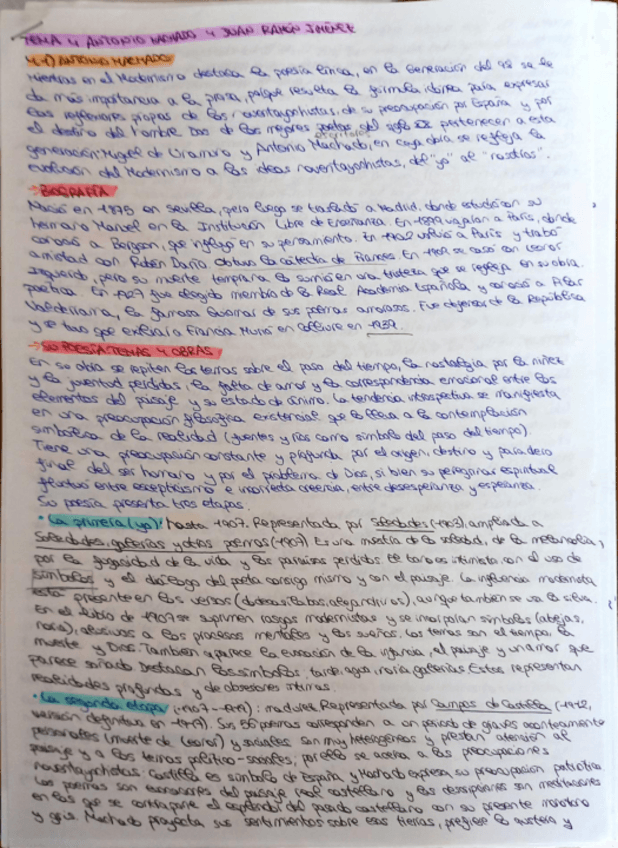 TEMA 4 ANTONIO MACHADO Y JUAN RAMÓN JIMÉNEZ
4.1) ANTONIO MACHADO
Mientras en el Modernismo destaca la poesía lírica, en la Generación del 98 se le
da más importancia a la prosa, porque resulta la fórmula idónea para expresar
las reflexiones propias de los noventayochistas, de su preocupación por España y por
el destino del hombre. Dos de los mejores escritores del siglo XX pertenecen a esta
generación: Miguel de Unamuno y Antonio Machado, en cuya obra se refleja la
evolución del Modernismo a las ideas noventayochistas, del "yo" al "nosotros".
→ BIOGRAFÍA
Nació en 1875 en Sevilla, pero luego se trasladó a Madrid, donde estudió con su
hermano Manuel en la Institución Libre de Enseñanza. En 1899 viajan a París, donde
conoció a Bergson, que influyó en su pensamiento. En 1902 volvió a París y trabó
amistad con Rubén Darío. Obtuvo la cátedra de Francés. En 1909 se casó con Leonor
Izquierdo, pero su muerte temprana lo sumió en una tristeza que se refleja en su obra
poética. En 1927 fue elegido miembro de la Real Academia Española y conoció a Pilar
Valderrama, la famosa Guiomar de sus poemas amorosos. Fue defensor de la República
y se tuvo que exiliar a Francia. Murió en Colliure en 1939.
→ SU POESÍA: TEMAS Y OBRAS
En su obra se repiten los temas sobre el paso del tiempo, la nostalgia por la niñez
y la juventud perdidas, la falta de amor y la correspondencia emocional entre los
elementos del paisaje y su estado de ánimo. La tendencia introspectiva se manifiesta
en una preocupación filosófica existencial que lo lleva a la contemplación
simbólica de la realidad (fuentes y ríos como símbolo del paso del tiempo).
Tiene una preocupación constante y profunda por el origen, destino y paradero
final del ser humano y por el problema de Dios, si bien su peregrinar espiritual
fluctuó entre escepticismo e incierta creencia, entre desesperanza y esperanza.
Su poesía presenta tres etapas.
• La primera (yo): hasta 1907. Representada por Soledades (1903), ampliada a
Soledades, galerías y otros poemas (1907). Es una muestra de la soledad, de la melancolía,
por la fugacidad de la vida y los paraísos perdidos. El tono es intimista con el uso de
símbolos y el diálogo del poeta consigo mismo y con el paisaje. La influencia modernista
está presente en los versos (dodecasílabos, alejandrinos), aunque también se usa la silva.
En el libro de 1907 se suprimen rasgos modernistas y se incorporan símbolos (abejas,
noria), alusivos a los procesos mentales y los sueños. Los temas son el tiempo, la
muerte y Dios. También aparece la evocación de la infancia, el paisaje y un amor que
parece soñado. Destacan los símbolos: tarde, agua, noria, galerías. Estos representan
realidades profundas y de obsesiones íntimas.
• La segunda etapa (1907-1917): madurez. Representada por Campos de Castilla (1912,
versión definitiva en 1917). Sus 56 poemas corresponden a un periodo de graves acontecimientos
personales (muerte de Leonor) y sociales. Son muy heterogéneos y prestan atención al
paisaje y a los temas político-sociales, por ello se acerca a las preocupaciones
noventayochistas: Castilla es símbolo de España, y Machado expresa su preocupación patriótica.
Los poemas son evocaciones del paisaje real castellano y las descripciones son meditaciones
en las que se contrapone el esplendor del pasado castellano con su presente monótono
y gris. Machado proyecta sus sentimientos sobre esas tierras, prefiere lo austero y